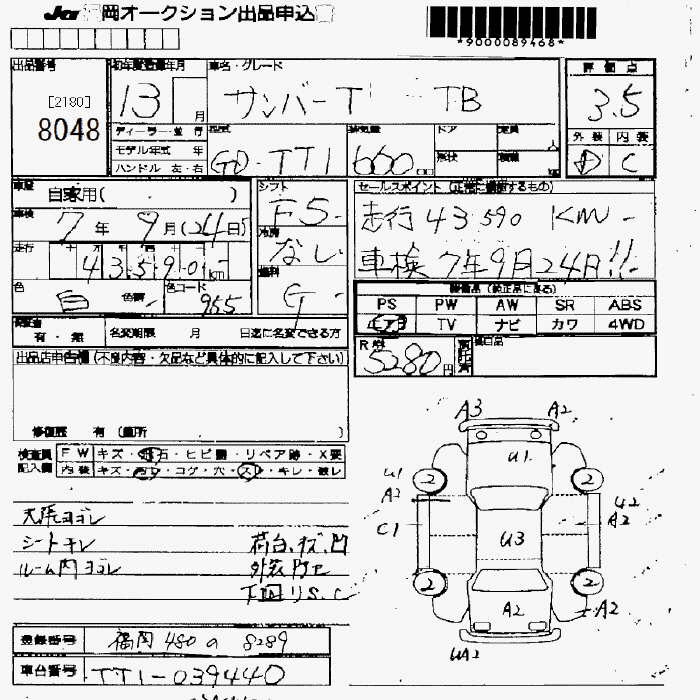 JU 岡オークション出品申込
*9000089468*
出品番号
[2180]
8048
初年度登録年月
13 月
車名・グレード
サンバーT TB
評価点
3.5
外装 内装
D C
ディーラー・並行
モデル年式 年
ハンドル 左・右
型式
GD-TT1
排気量
660 cc
ドア
形状
定員
人
積載
車歴
自家用( )
車検
7年 9月(24日)
走行
43,590 km
色
白
色替
色コード
955
シフト
F5
冷房
なし
燃料
G
セールスポイント
走行 43590 KM
車検 7年9月24日!!
装備品(純正品に限る)
PS PW AW SR ABS
エアB TV ナビ カワ 4WD
R 料
5280円
有・無
名変期限 月 日迄に名変できる方
出品店申告欄(不具内容・欠品など具体的に記入して下さい)
修復歴 有(箇所 )
検査員
記入欄
FW キズ・飛石・ヒビ割・リペア跡・X要
内装 キズ・汚れ・コゲ・穴・スレ・キレ・破レ
天張ヨゴレ
シートキレ
ルーム内ヨゴレ
荷台、キズ、凹
下回りS.C
A3 A2
U1
U1
A2
2 2
C1
U3
U2
A2
2 2
A2
A2
UA2
登録番号 福岡 480 の 8289
車台番号 TT1-039440